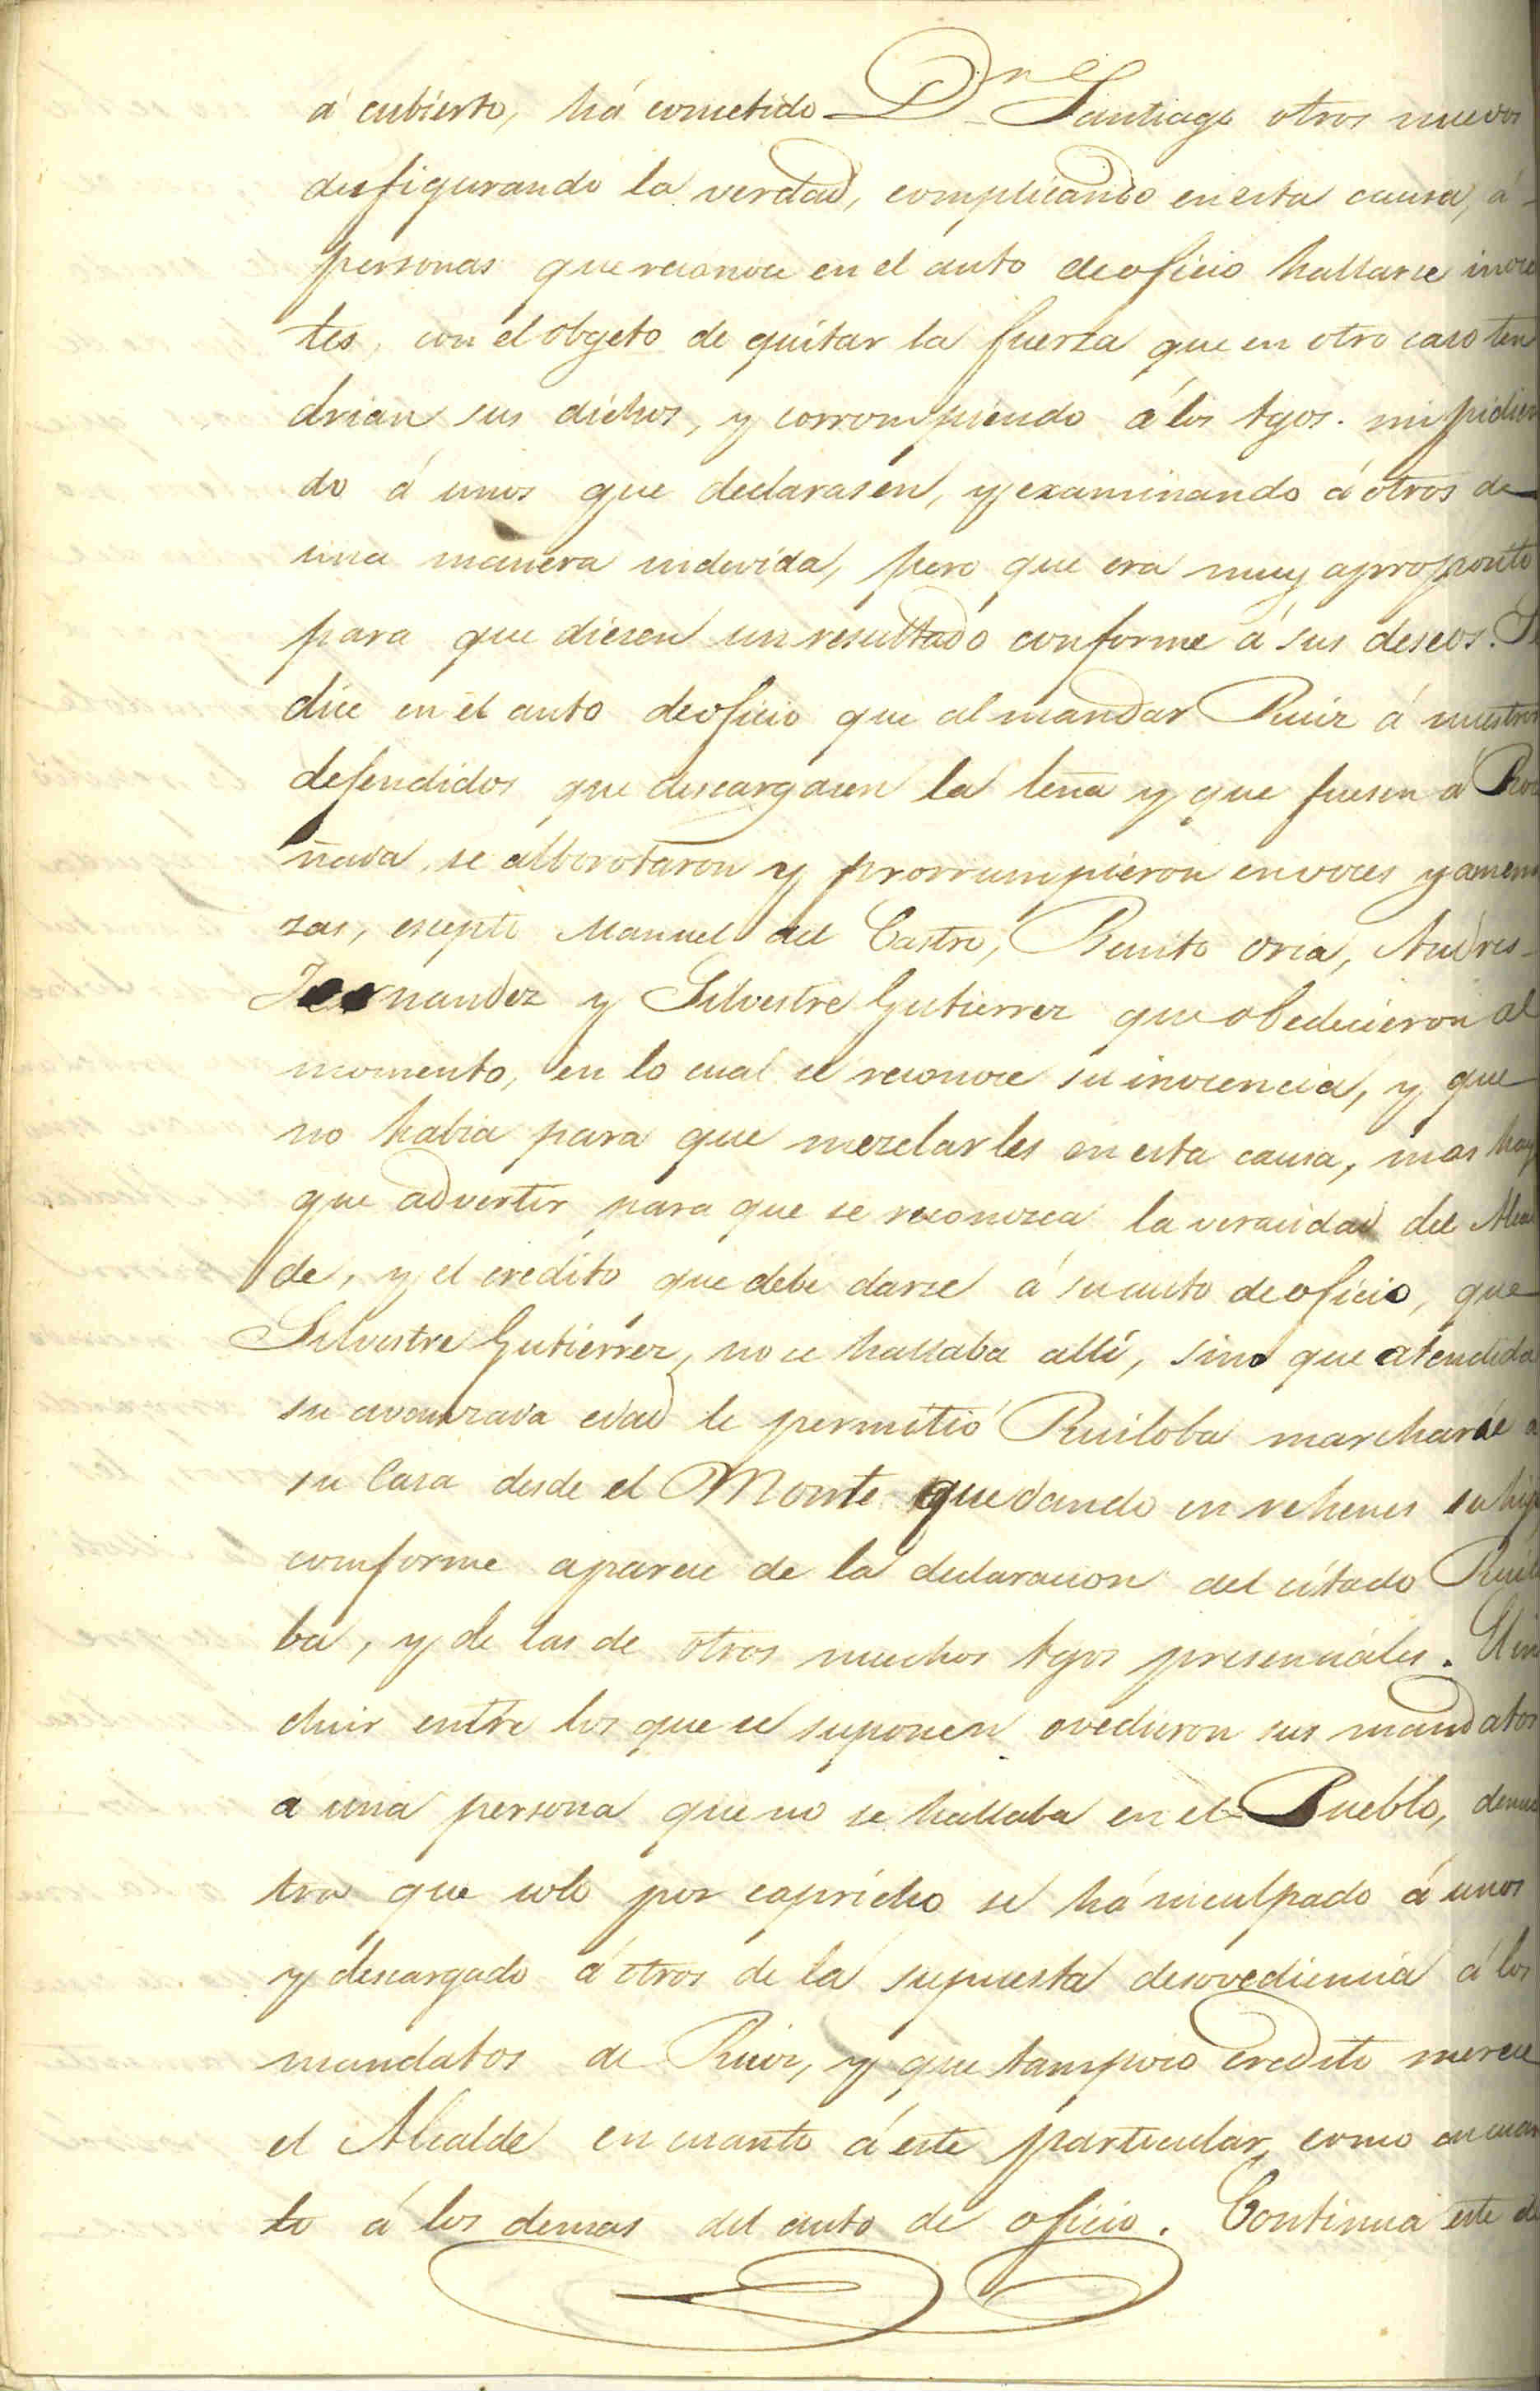 á cubierto, há cometido Dn Santiago otros nuevos
desfigurando la verdad, complicando en esta causa, á
personas que reconoce en el auto de oficio hallarse inocen
tes, con el obgeto de quitar la fuerza que en otro caso ten
drian sus dichos, y corrompiendo á los tgos. impidien
do á unos que declarasen, y examinando á otros de
una manera indevida, pero que era muy aproposito
para que diesen un resultado conforme á sus deseos. S
dice en el auto de oficio que al mandar Ruiz á nuestros
defendidos que descargasen la leña y que fuesen á
ñada, se alborotaron y prorrumpieron en voces y amena
zas, escepto Manuel del Castro, Benito Oria, Andres
Fernandez y Silvestre Gutierrez que obedecieron al
momento, en lo cual se reconoce su inocencia, y que
no habia para que mezclarles en esta causa, mas hay
que advertir para que se reconozca la veracidad del Alcal
de, y el credito que debe darse á su auto de oficio, que
Silvestre Gutierrez, no se hallaba allí, sino que atendida
su avanzada edad le permitió Ruiloba marcharse a
su Casa desde el Monte quedando en rehenes su hijo
comforme aparece de la declaracion del citado Ruilo
ba, y de las de otros muchos tgos presenciales. El in
cluir entre los que se suponen ovedieron sus mandatos
a una persona que no se hallaba en el Pueblo, demues
tra que solo por capricho se há inculpado á unos
y descargado á otros de la supuesta desovediencia á los
mandatos de Ruiz, y que tampoco credito merece
el Alcalde en cuanto á este particular, como en cuan
to á los demas del auto de oficio. Continua este de